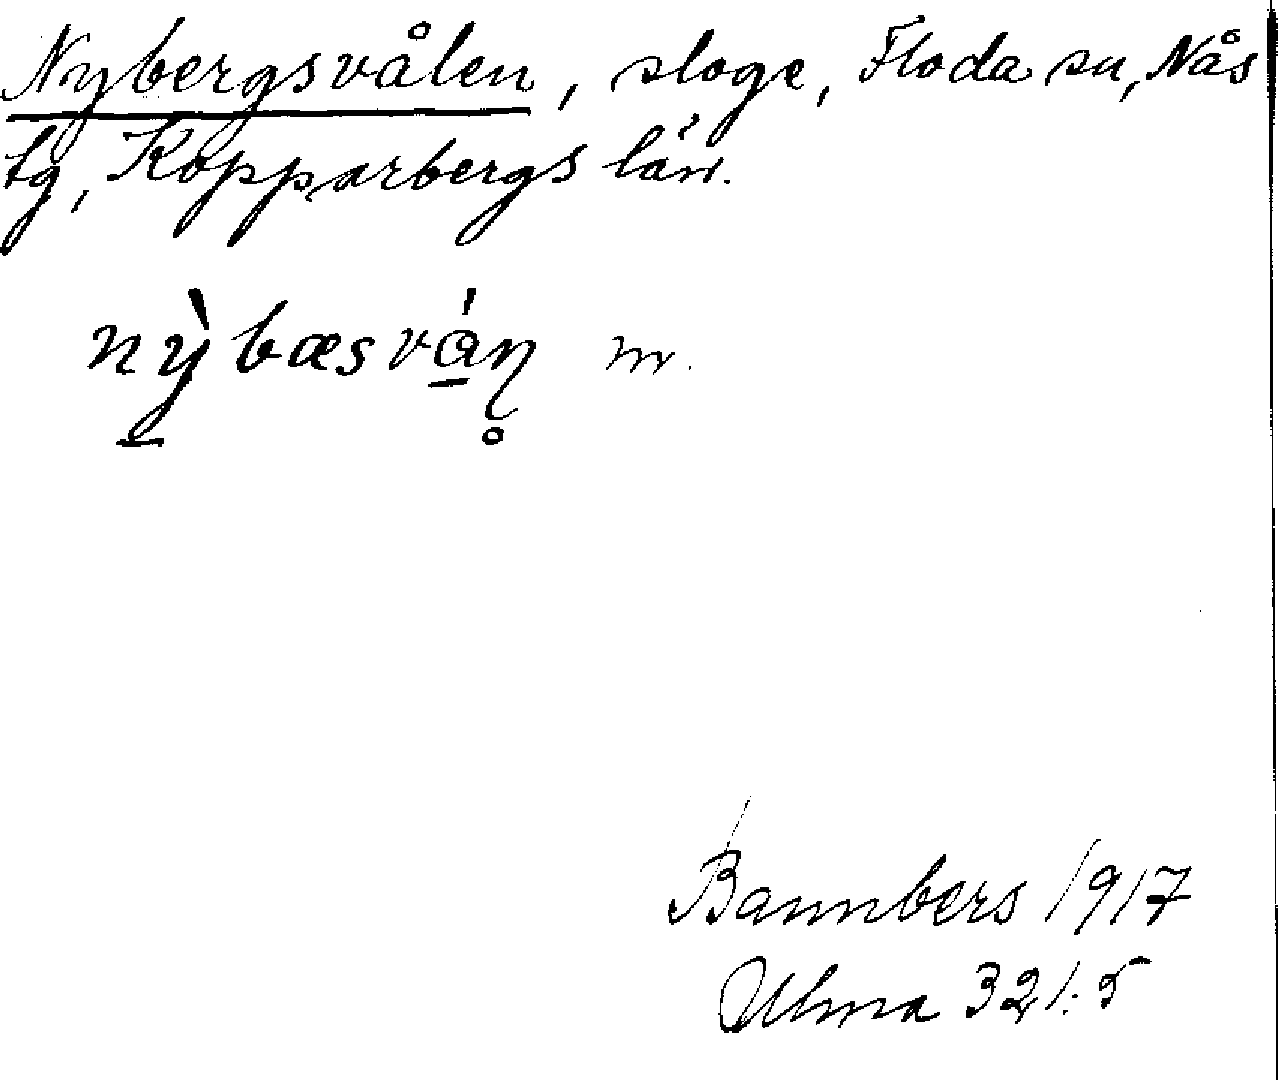 Nybergsvålen, sloge, Floda sn, Nås
tg, Kopparbergs län.
nỳ̠bæsvá̠ŋ̥ m.
Bannbers 1917
Ulma 321:5